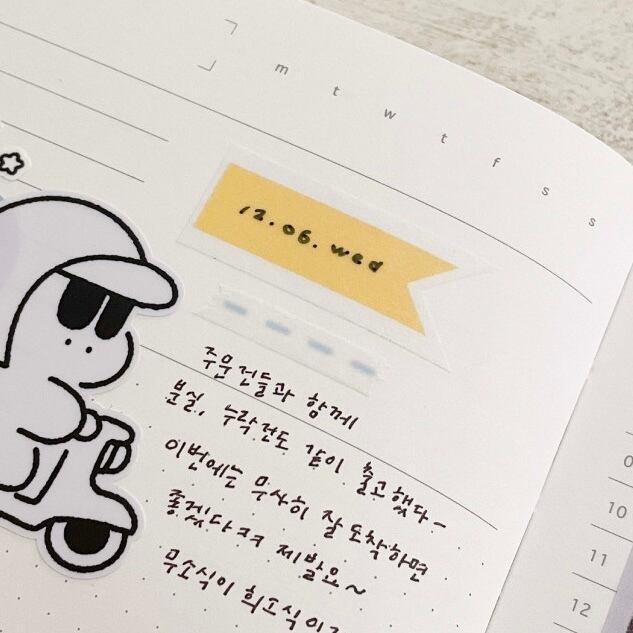 m t w t f s s
12.06.wed
주문건들과 함께
분실, 누락건도 같이 출고했다~
이번에는 무사히 잘 도착하면
좋겠다ㅋㅋ 제발요~
무소식이 희소식이
10
11
12